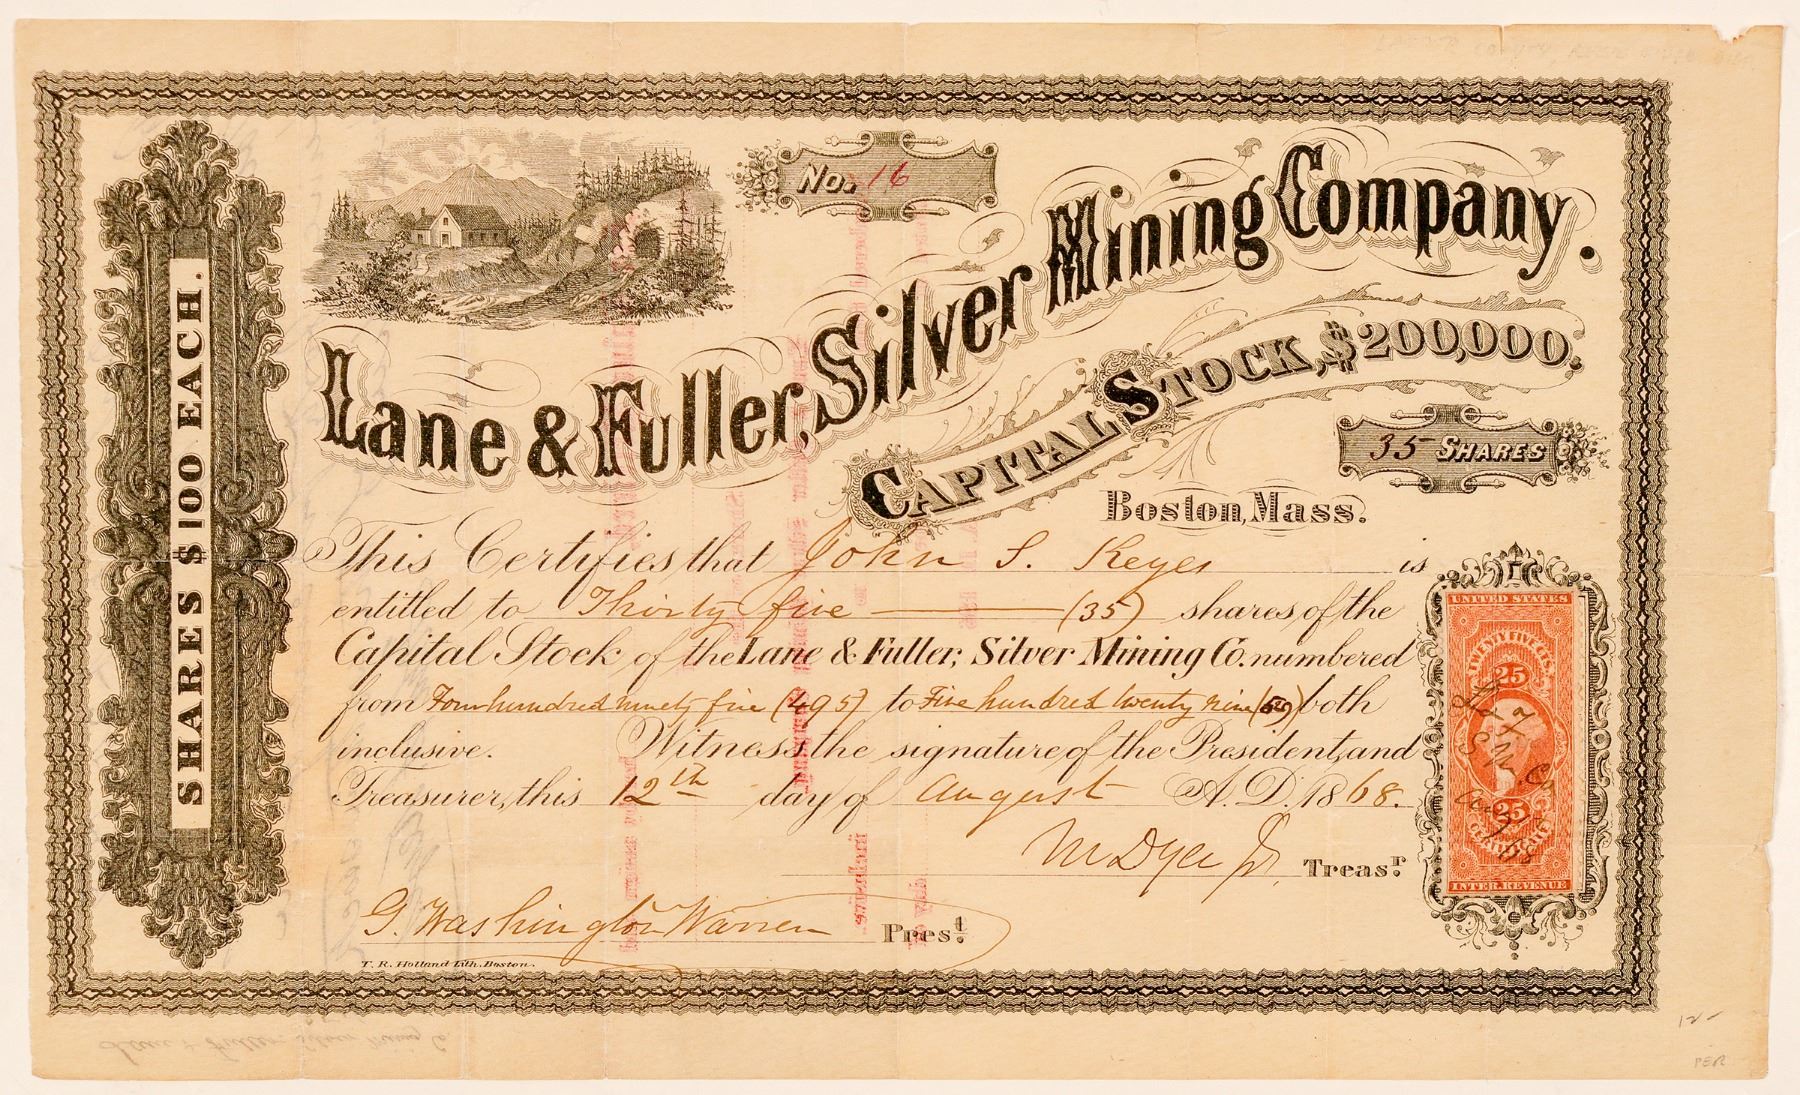 No. 16
Lane & Fuller, Silver Mining Company.
Capital Stock, $200,000.
35 Shares
Boston, Mass.
SHARES $100 EACH.
This Certifies that John S. Keyes is
entitled to Thirty five (35) shares of the
Capital Stock of the Lane & Fuller, Silver Mining Co. numbered
from Four hundred ninety five (495) to Five hundred twenty nine both
inclusive. Witness the signature of the President, and
Treasurer, this 12th day of August A.D. 1868.
M Dyer Jr. Treasr.
G. Washington Warren Prest.
T. R. Holland Lith. Boston.
UNITED STATES
TWENTY FIVE CTS
25
25
CERTIFICATE
INTER. REVENUE
Lane & Fuller Silver Mining Co.
12-
PER